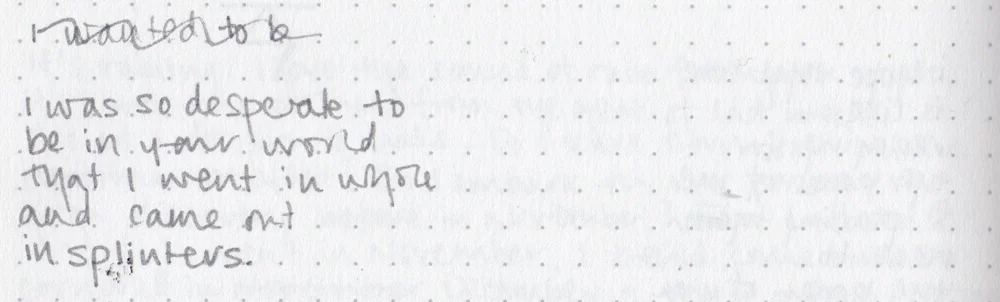 I wanted to be
I was so desperate to
be in your world
that I went in whole
and came out
in splinters.